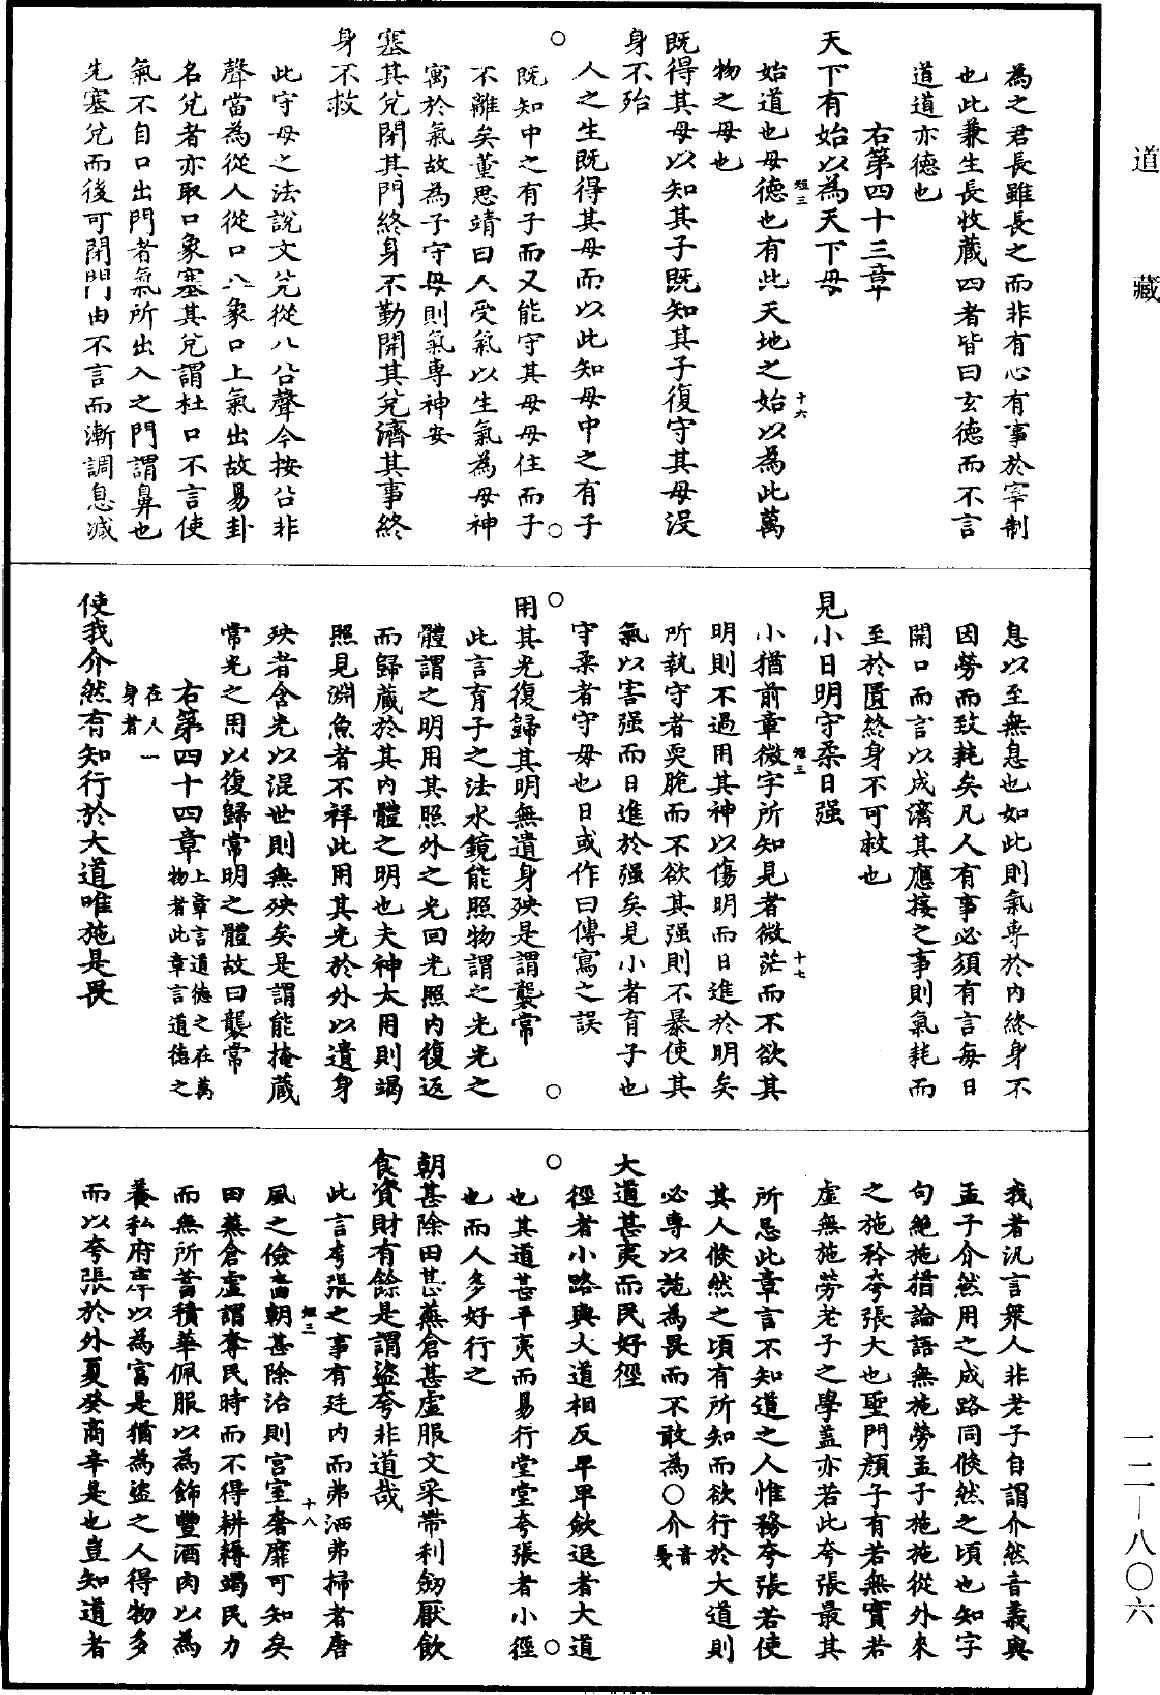 道藏
為之君長雖長之而非有心有事於宰制
也此兼生長收藏四者皆曰玄德而不言
道道亦德也
右第四十三章
天下有始以為天下母
始道也母德也有此天地之始以為此萬
物之母也
既得其母以知其子既知其子復守其母沒
身不殆
人之生既得其母而以此知母中之有子
既知中之有子而又能守其母母住而子
不離矣董思靖曰人受氣以生氣為母神
寓於氣故為子守母則氣專神安
塞其兌閉其門終身不勤開其兌濟其事終
身不救
此守母之法說文兌從八㕣聲今按㕣非
聲當為從人從口八象口上氣出故易卦
名兌者亦取口象塞其兌謂杜口不言使
氣不自口出門者氣所出入之門謂鼻也
先塞兌而後可閉門由不言而漸調息減
短三 十六
息以至無息也如此則氣專於內終身不
因勞而致耗矣凡人有事必須有言每日
開口而言以成濟其應接之事則氣耗而
至於匱終身不可救也
見小曰明守柔日强
小猶前章微字所知見者微茫而不欲其
明則不過用其神以傷明而日進於明矣
所執守者耎脆而不欲其强則不暴使其
氣以害强而日進於强矣見小者育子也
守柔者守母也日或作曰傳寫之誤
用其光復歸其明無遺身殃是謂襲常
此言育子之法水鏡能照物謂之光光之
體謂之明用其照外之光回光照內復返
而歸藏於其內體之明也夫神太用則竭
照見淵魚者不祥此用其光於外以遺身
殃者含光以混世則無殃矣是謂能掩藏
常光之用以復歸常明之體故曰襲常
右第四十四章 上章言道德之在萬物者此章言道德之在人一身者
使我介然有知行於大道唯施是畏
短三 十七
我者汎言衆人非老子自謂介然音義與
孟子介然用之成路同倏然之頃也知字
句絕施猶論語無施勞孟子施施從外來
之施矜夸張大也聖門顏子有若無實若
虛無施勞老子之學蓋亦若此夸張最其
所忌此章言不知道之人惟務夸張若使
其人倏然之頃有所知而欲行於大道則
必專以施為畏而不敢為○介音戛
大道甚夷而民好徑
徑者小路與大道相反卑卑歛退者大道
也其道甚平夷而易行堂堂夸張者小徑
也而人多好行之
朝甚除田甚蕪倉甚虛服文采帶利劒厭飲
食資財有餘是謂盜夸非道哉
此言夸張之事有廷內而弗洒弗掃者唐
風之儉嗇朝甚除治則宮室奢靡可知矣
田蕪倉虛謂奪民時而不得耕耨竭民力
而無所蓄積華佩服以為飾豐酒肉以為
養私府庫以為富是猶為盜之人得物多
而以夸張於外夏癸商辛是也豈知道者
短三 十八
一二—八〇六